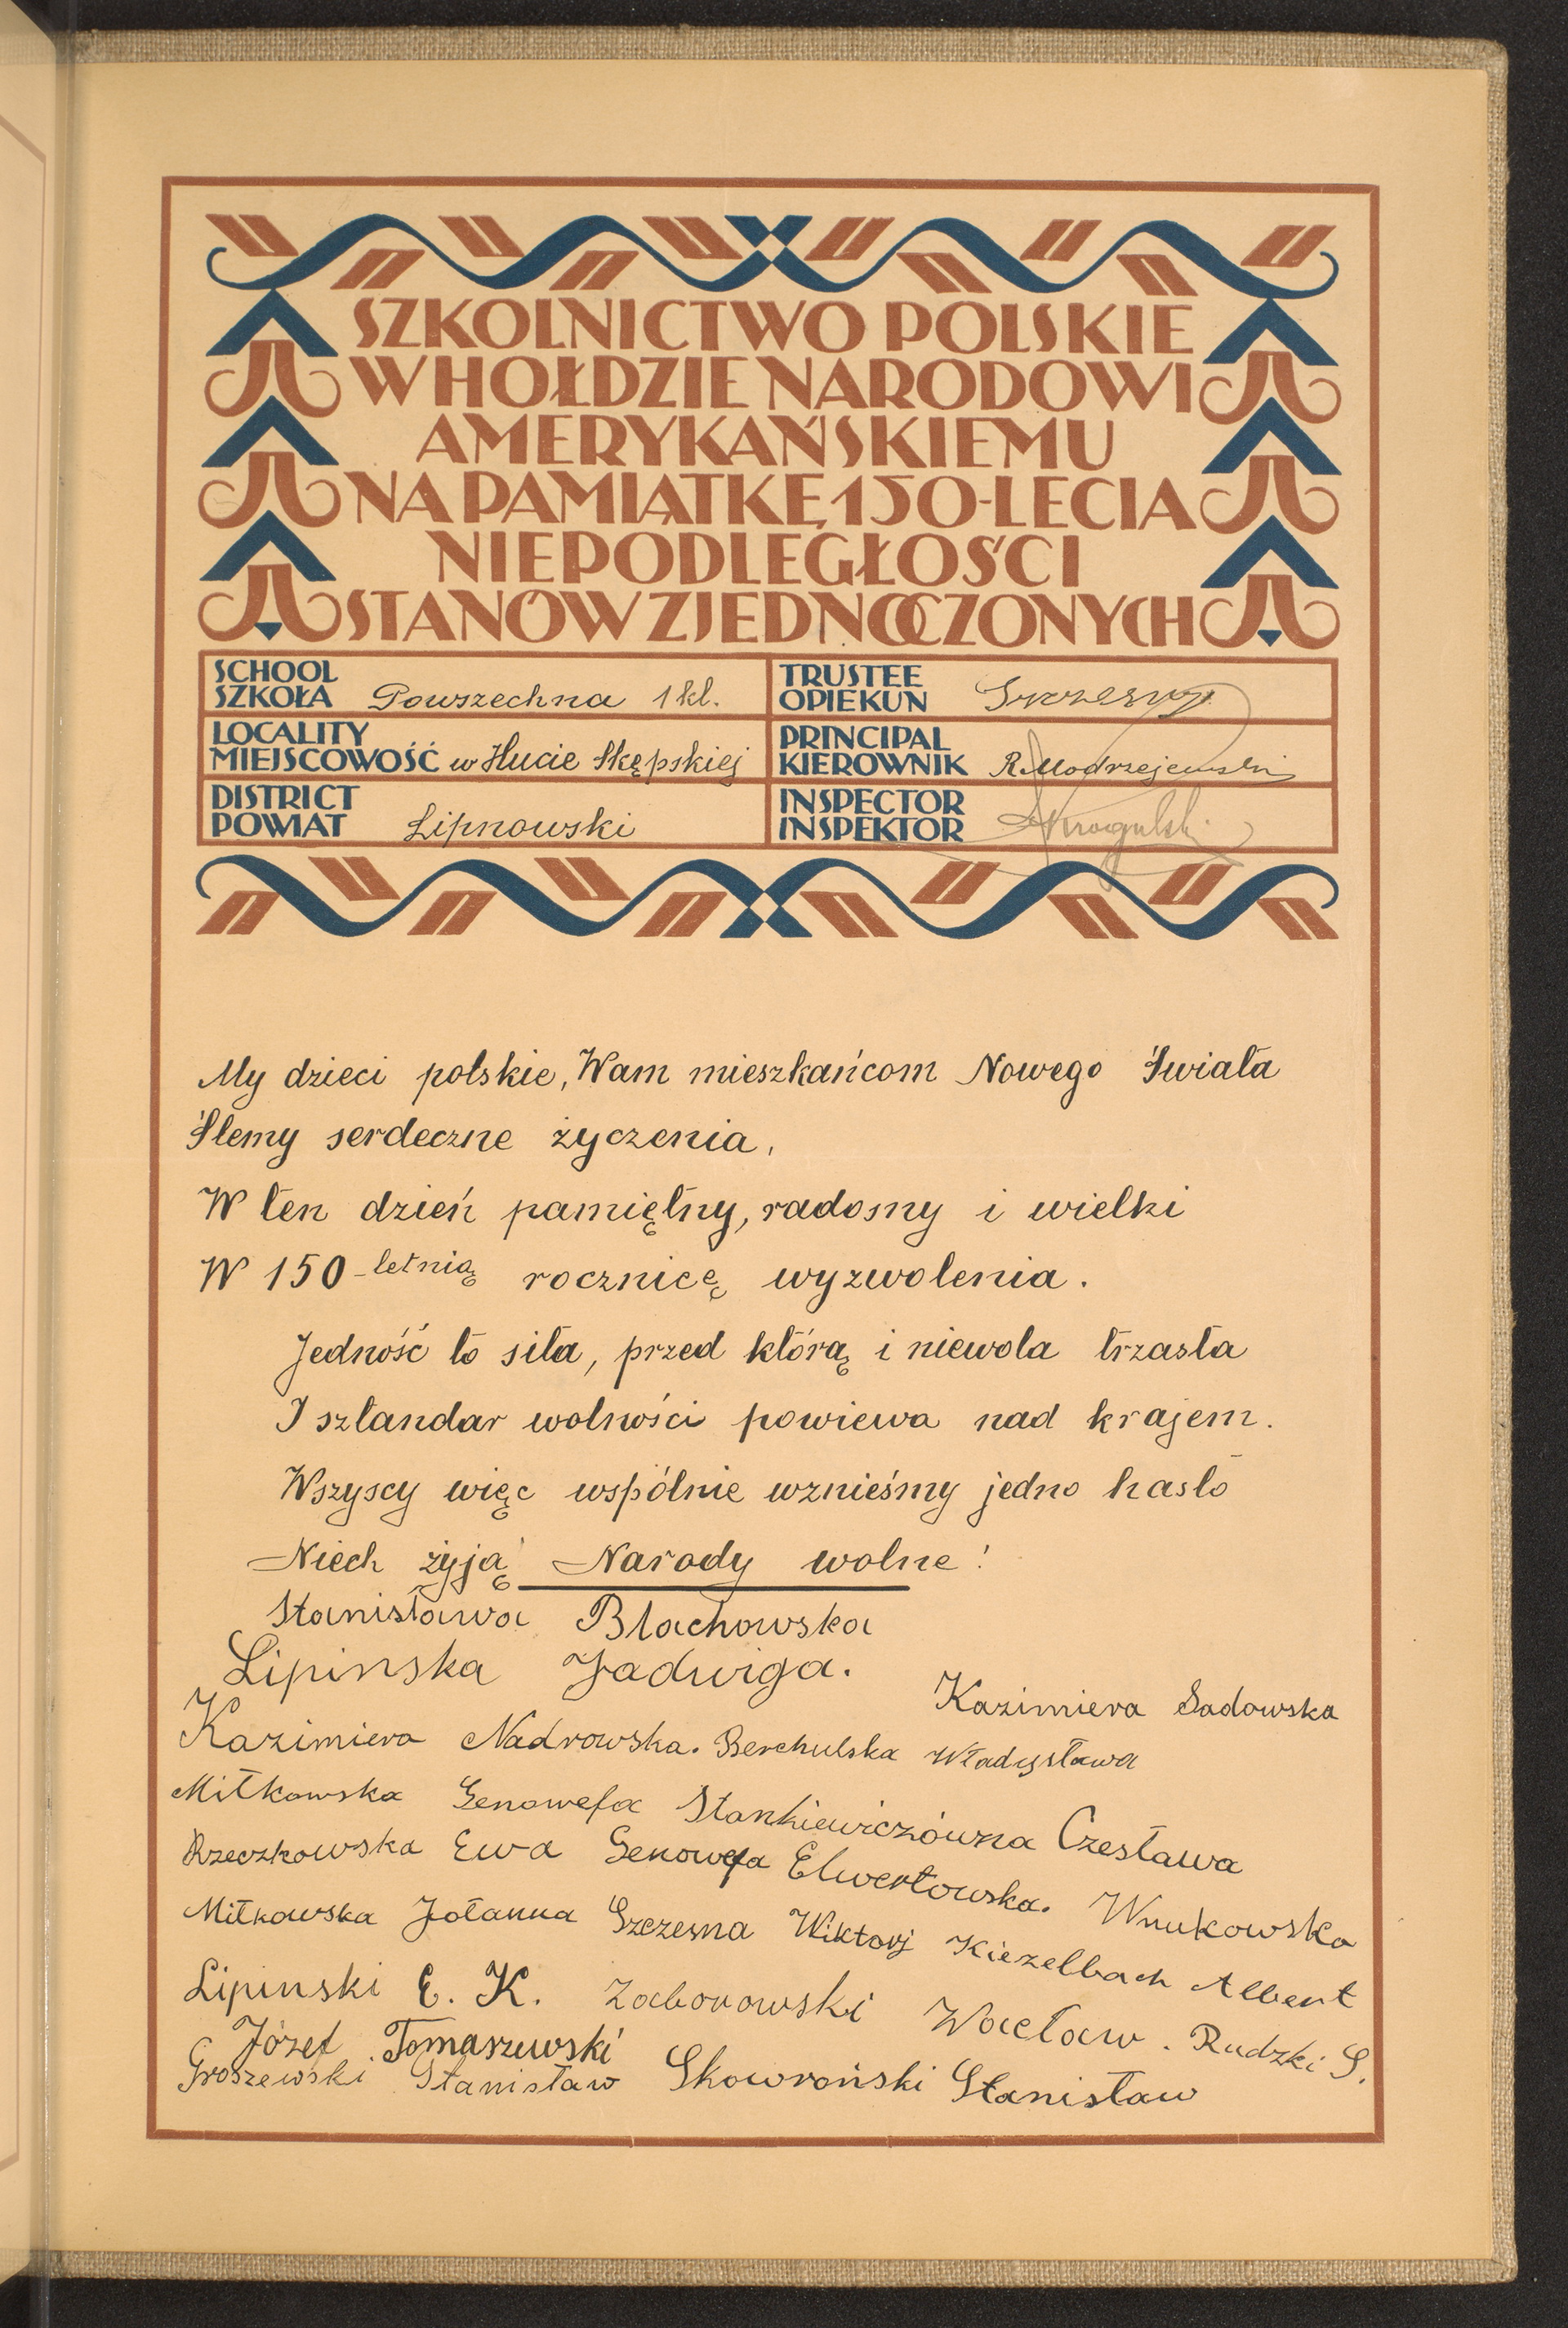 SZKOLNICTWO POLSKIE
W HOŁDZIE NARODOWI
AMERYKAŃSKIEMU
NA PAMIĄTKĘ 150-LECIA
NIEPODLEGŁOŚCI
STANÓW ZJEDNOCZONYCH
SCHOOL
SZKOŁA Powszechna 1 kl.
TRUSTEE
OPIEKUN
LOCALITY
MIEJSCOWOŚĆ w Hucie Skępskiej
PRINCIPAL
KIEROWNIK R. Modrzejewski
DISTRICT
POWIAT Lipnowski
INSPECTOR
INSPEKTOR
My dzieci polskie, Wam mieszkańcom Nowego Świata
Ślemy serdeczne życzenia,
W ten dzień pamiętny, radosny i wielki
W 150-letnią rocznicę wyzwolenia.
Jedność to siła, przed którą i niewola trzasła
I sztandar wolności powiewa nad krajem.
Wszyscy więc wspólnie wznieśmy jedno hasło
Niech żyją Narody wolne!
Stanisława Błachowska
Lipinska Jadwiga.
Kazimiera Sadowska
Kazimiera Nadrowska. Berchulska Władysława
Miłkowska Genowefa Stankiewiczówna Czesława
Rzeczkowska Ewa Genowefa Elwertowska. Wnukowska
Miłkowska Jołanna Szczesna Wiktorj Kiezelbach Albert
Lipinski E. K. Zaborowski Wacław. Rudzki S.
Józef Tomaszewski
Groszewski Stanisław Skowroński Stanisław